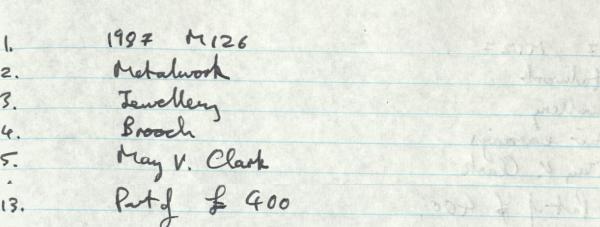 1. 1987 M126
2. Metalwork
3. Jewellery
4. Brooch
5. May V. Clark
13. Part of £ 400